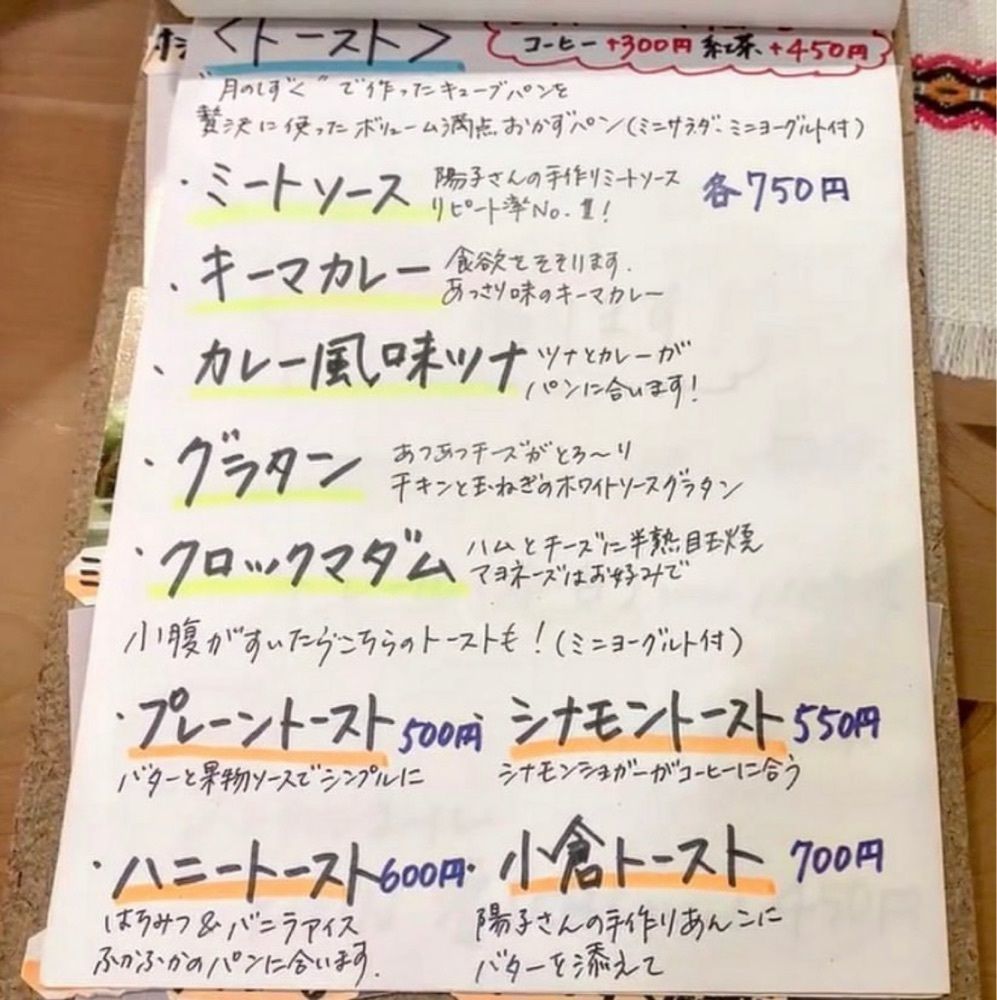 <トースト>
コーヒー+300円 紅茶+450円
"月のしずく"で作ったキューブパンを
贅沢に使ったボリューム満点おかずパン(ミニサラダ・ミニヨーグルト付)
・ミートソース
陽子さんの手作りミートソース
リピート率No.1!
各750円
・キーマカレー
食欲をそそります.
あっさり味のキーマカレー
・カレー風味ツナ
ツナとカレーが
パンに合います!
・グラタン
あつあつチーズがとろ〜り
チキンと玉ねぎのホワイトソースグラタン
・クロックマダム
ハムとチーズに半熟目玉焼
マヨネーズはお好みで
小腹がすいたらこちらのトーストも!(ミニヨーグルト付)
・プレーントースト 500円
バターと果物ソースでシンプルに
・シナモントースト 550円
シナモンシュガーがコーヒーに合う
・ハニートースト 600円
はちみつ&バニラアイス
ふかふかのパンに合います.
・小倉トースト 700円
陽子さんの手作りあんこに
バターを添えて